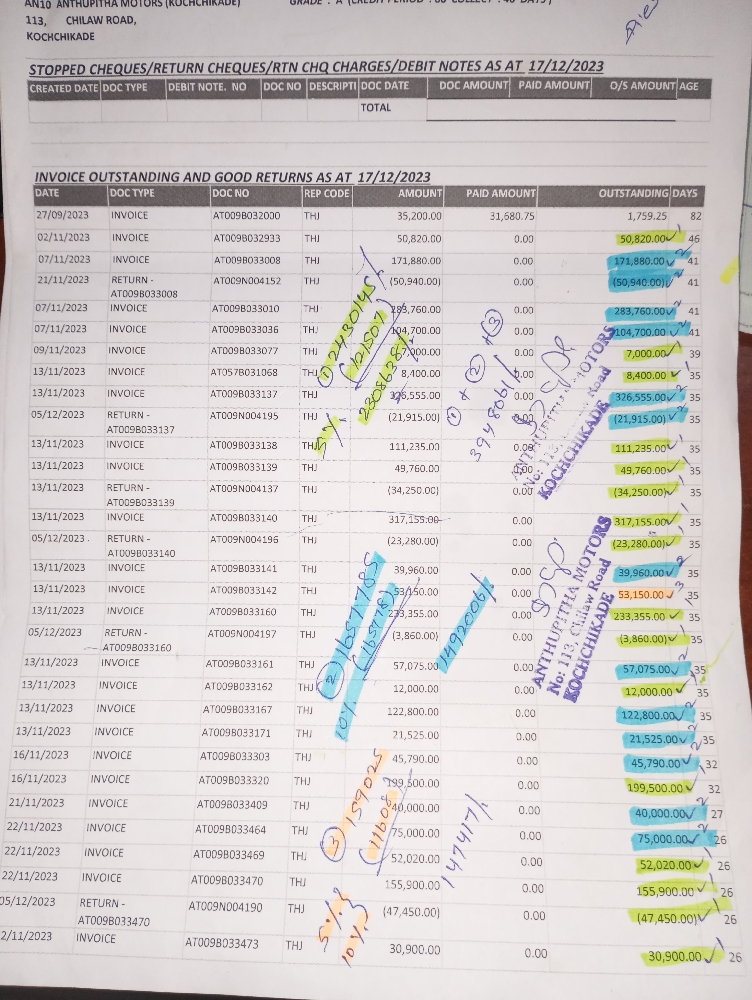 AN10 ANTHUPITHA MOTORS (KOCHCHIKADE)
113, CHILAW ROAD,
KOCHCHIKADE
STOPPED CHEQUES/RETURN CHEQUES/RTN CHQ CHARGES/DEBIT NOTES AS AT 17/12/2023
CREATED DATE DOC TYPE DEBIT NOTE. NO DOC NO DESCRIPTI DOC DATE DOC AMOUNT PAID AMOUNT O/S AMOUNT AGE
TOTAL
INVOICE OUTSTANDING AND GOOD RETURNS AS AT 17/12/2023
DATE DOC TYPE DOC NO REP CODE AMOUNT PAID AMOUNT OUTSTANDING DAYS
27/09/2023 INVOICE AT009B032000 THJ 35,200.00 31,680.75 1,759.25 82
02/11/2023 INVOICE AT009B032933 THJ 50,820.00 0.00 50,820.00 46
07/11/2023 INVOICE AT009B033008 THJ 171,880.00 0.00 171,880.00 41
21/11/2023 RETURN - AT009N004152 THJ (50,940.00) 0.00 (50,940.00) 41
AT009B033008
07/11/2023 INVOICE AT009B033010 THJ 283,760.00 0.00 283,760.00 41
07/11/2023 INVOICE AT009B033036 THJ 104,700.00 0.00 104,700.00 41
09/11/2023 INVOICE AT009B033077 THJ 7,000.00 0.00 7,000.00 39
13/11/2023 INVOICE AT057B031068 THJ 8,400.00 0.00 8,400.00 35
13/11/2023 INVOICE AT009B033137 THJ 326,555.00 0.00 326,555.00 35
05/12/2023 RETURN - AT009N004195 THJ (21,915.00) 0.00 (21,915.00) 35
AT009B033137
13/11/2023 INVOICE AT009B033138 THJ 111,235.00 0.00 111,235.00 35
13/11/2023 INVOICE AT009B033139 THJ 49,760.00 0.00 49,760.00 35
13/11/2023 RETURN - AT009N004137 THJ (34,250.00) 0.00 (34,250.00) 35
AT009B033139
13/11/2023 INVOICE AT009B033140 THJ 317,155.00 0.00 317,155.00 35
05/12/2023 RETURN - AT009N004196 THJ (23,280.00) 0.00 (23,280.00) 35
AT009B033140
13/11/2023 INVOICE AT009B033141 THJ 39,960.00 0.00 39,960.00 35
13/11/2023 INVOICE AT009B033142 THJ 53,150.00 0.00 53,150.00 35
13/11/2023 INVOICE AT009B033160 THJ 233,355.00 0.00 233,355.00 35
05/12/2023 RETURN - AT009N004197 THJ (3,860.00) 0.00 (3,860.00) 35
AT009B033160
13/11/2023 INVOICE AT009B033161 THJ 57,075.00 0.00 57,075.00 35
13/11/2023 INVOICE AT009B033162 THJ 12,000.00 0.00 12,000.00 35
13/11/2023 INVOICE AT009B033167 THJ 122,800.00 0.00 122,800.00 35
13/11/2023 INVOICE AT009B033171 THJ 21,525.00 0.00 21,525.00 35
16/11/2023 INVOICE AT009B033303 THJ 45,790.00 0.00 45,790.00 32
16/11/2023 INVOICE AT009B033320 THJ 199,500.00 0.00 199,500.00 32
21/11/2023 INVOICE AT009B033409 THJ 40,000.00 0.00 40,000.00 27
22/11/2023 INVOICE AT009B033464 THJ 75,000.00 0.00 75,000.00 26
22/11/2023 INVOICE AT009B033469 THJ 52,020.00 0.00 52,020.00 26
22/11/2023 INVOICE AT009B033470 THJ 155,900.00 0.00 155,900.00 26
05/12/2023 RETURN - AT009N004190 THJ (47,450.00) 0.00 (47,450.00) 26
AT009B033470
2/11/2023 INVOICE AT009B033473 THJ 30,900.00 0.00 30,900.00 26
① 2430145/-
(121507)
5% 2308638/-
① + ② + ③
3948061/-
ANTHUPITHA MOTORS
No: 113, Chilaw Road
KOCHCHIKADE
② 1657785
10% (165778)
1492006/-
ANTHUPITHA MOTORS
No: 113, Chilaw Road
KOCHCHIKADE
③ 159025
(11608)
147417/-
5% }
10% }